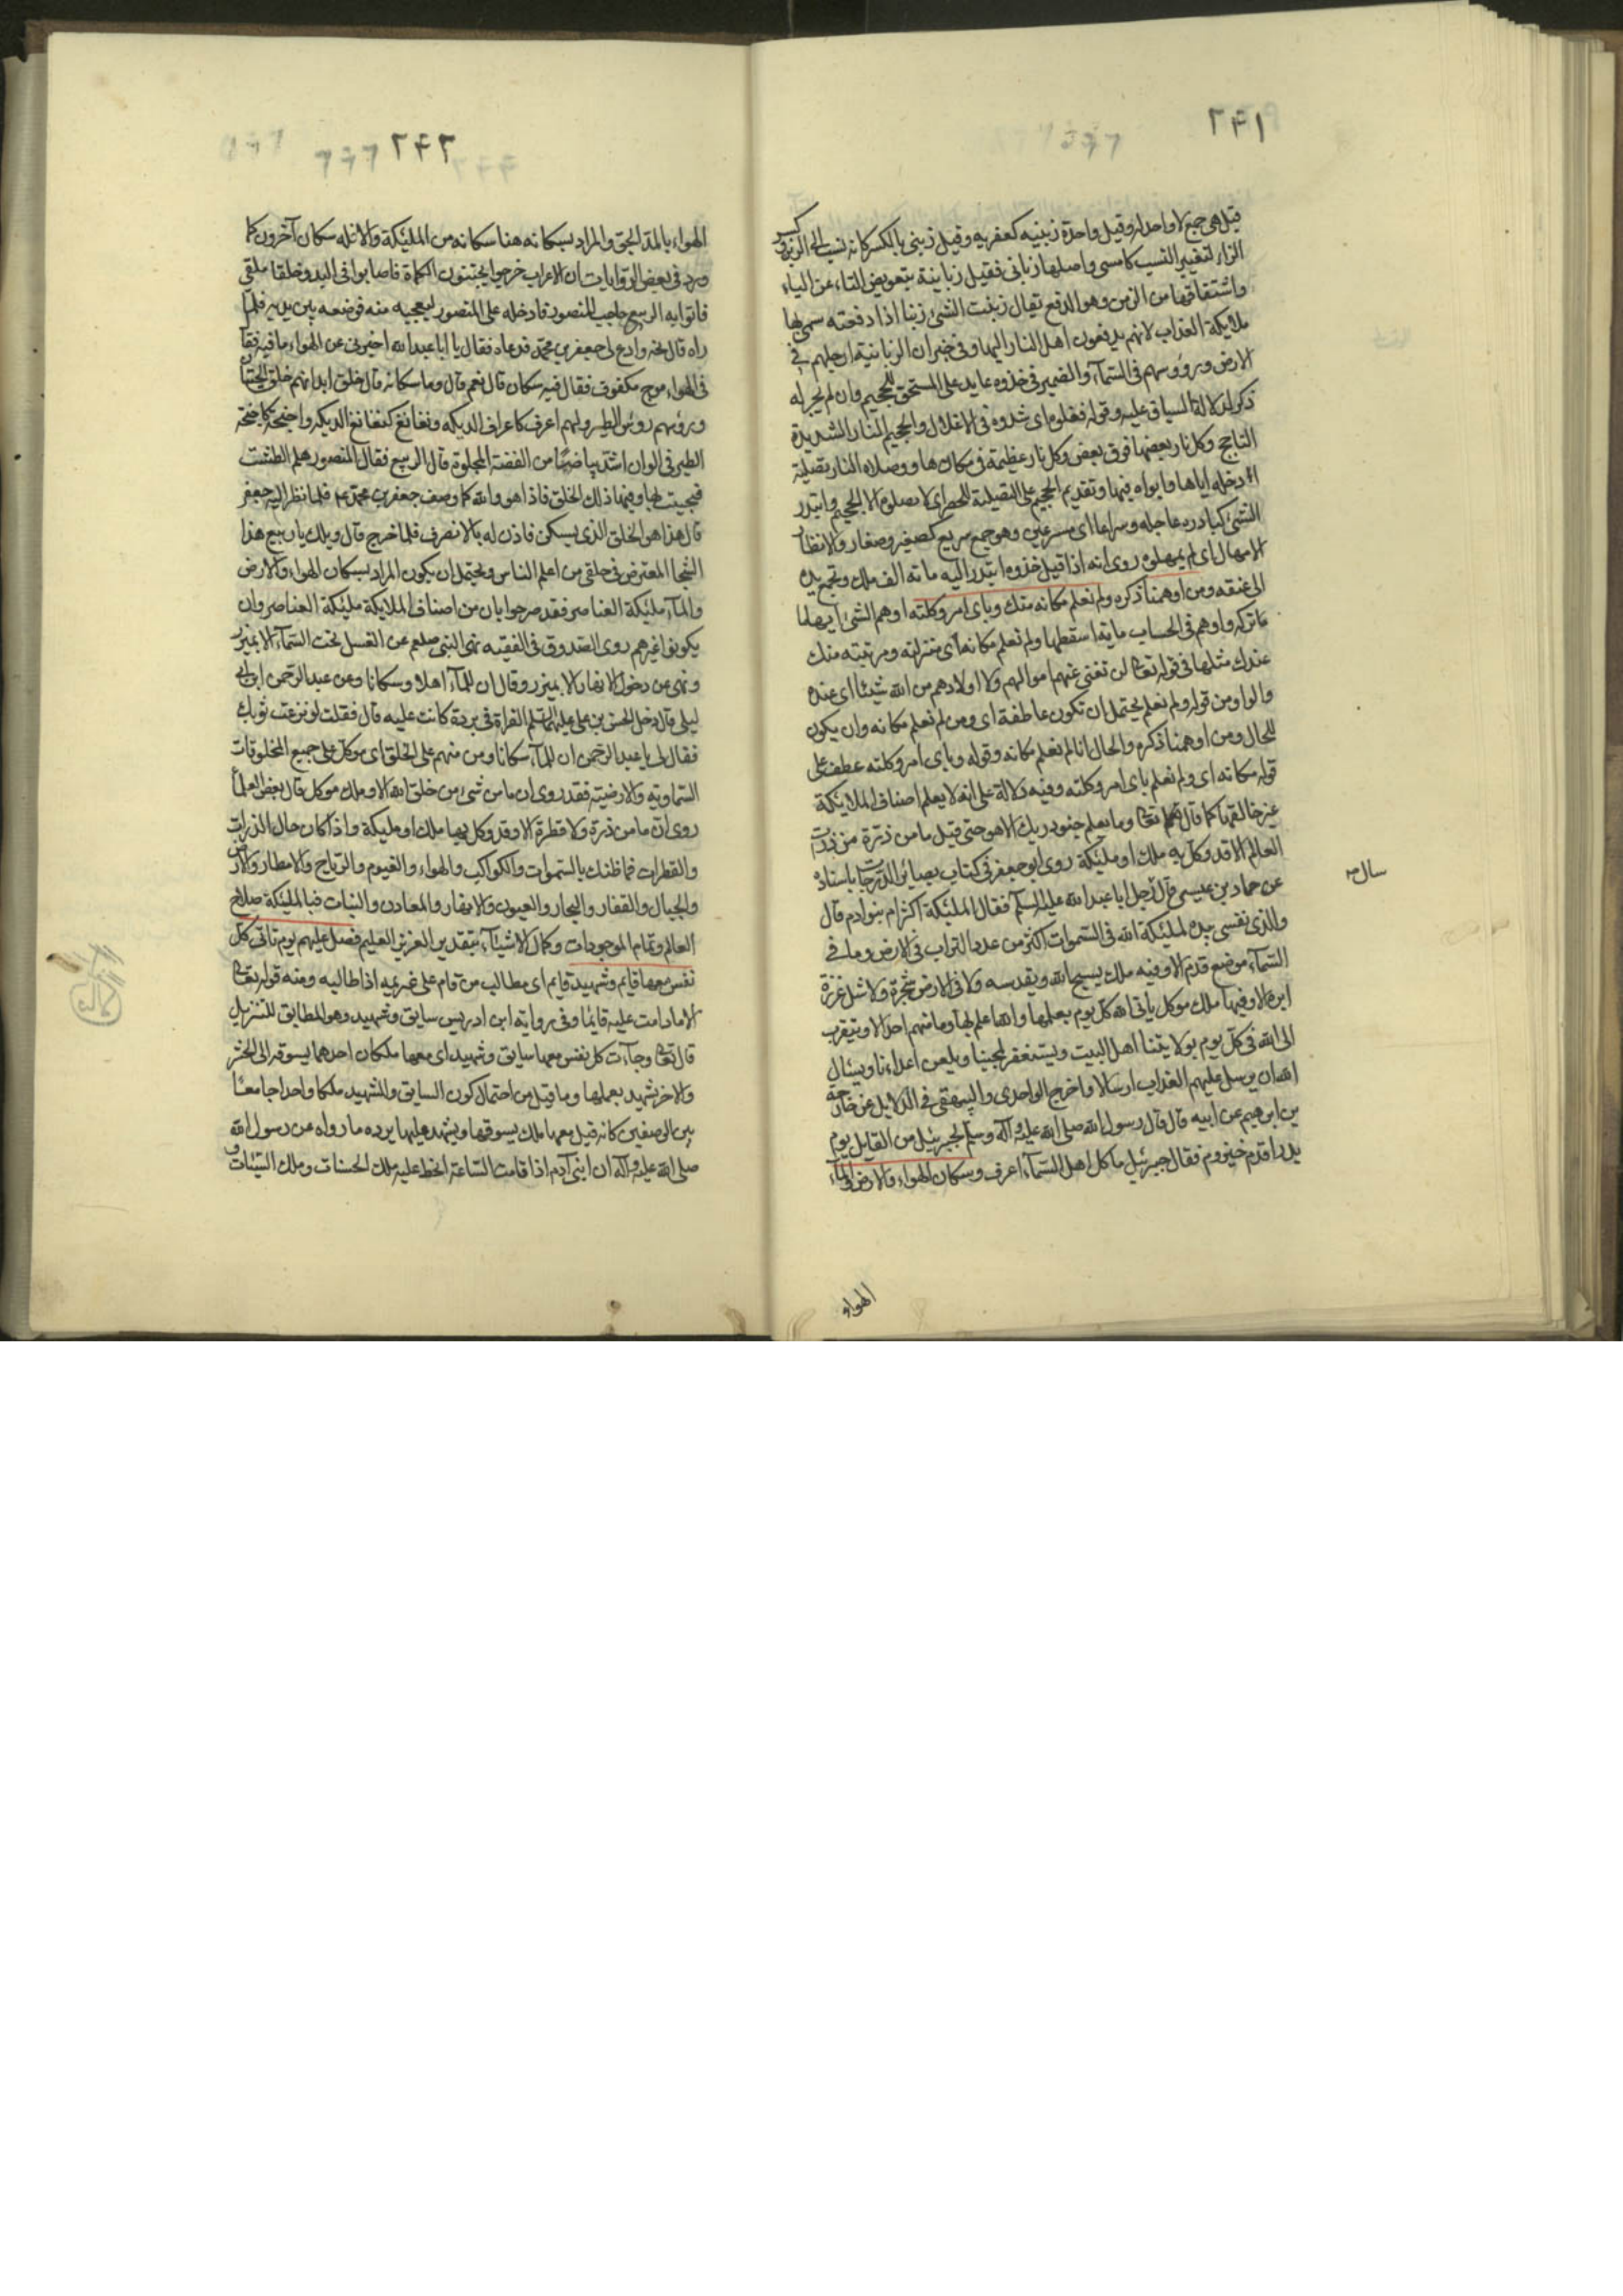 ٢٤١
قيل هى جمع لا واحد له وقيل واحدة زبنيه كعفريه وقيل زبنى بالكسر كانه نسب الى الزبن وكسر
الزاء لتغيير النسب كامسى واصلها زبانى فقيل زبانية بتعويض التاء عن الياء
واشتقاقها من الزبن وهو الدفع يقال زبنت الشئ زبنا اذا دفعته سمى بها
ملائكة العذاب لانهم يدفعون اهل النار اليها وفى خبر ان الزبانية ارجلهم فى
الارض ورؤسهم فى السمآء والضمير فى خذوه عايد على المستحق للجحيم وان لم يجر له
ذكر لدلالة السياق عليه وقوله فغلوه اى شدوه فى الاغلال والجحيم النار الشديدة
التاجج وكل نار بعضها فوق بعض وكل نار عظيمة فى مكان هاو وصلاه النار تصلية
ادخله اياها واثواه فيها وتقديم الجحيم على التصلية للحصر اى لا تصلوه الا الجحيم وابتدر
الشئ كبادره عاجله وسراعا اى مسرعين وهو جمع سريع كصغير وصغار والانظار
الامهال اى لم يمهلوه روى انه اذا قيل خذوه ابتدر اليه مائة الف ملك وتجمع يده
الى عنقه ومن اوهمنا ذكره ولم نعلم مكانه منك وباى امر وكلته اوهم الشئ ايهاما
تركه واوهم فى الحساب ماية اسقطها ولم نعلم مكانه اى منزلته ومرتبته منك
عندك مثلها فى قوله تعالى لن تغنى عنهم اموالهم ولا اولادهم من الله شيئا اى عنده
والواو من قوله ولم نعلم يحتمل ان تكون عاطفة اى ومن لم نعلم مكانه وان يكون
للحال ومن اوهمنا ذكره والحال انا لم نعلم مكانه وقوله وباى امر وكلته عطف على
قوله مكانه اى ولم نعلم باى امر وكلته وفيه دلالة على انه لا يعلم اصناف الملائكة
غير خالقها كما قال تعالى وما يعلم جنود ربك الا هو حتى قيل ما من ذرة من ذرات
العالم الا قد وكل به ملك او مليكة روى ابو جعفر فى كتاب بصائر الدرجات باسناده
عن حماد بن عيسى قال رجل ابا عبد الله عليه السلم فقال المليكة اكثر ام بنو ادم قال
سال
والذى نفسى بيده لمليكة الله فى السموات اكثر من عدد التراب فى الارض وما فى
السمآء موضع قدم الا وفيه ملك يسبح الله ويقدسه ولا فى الارض شجرة ولا مثل غرزة
ابرة الا وفيها ملك موكل ياتى الله كل يوم بعلمها والله اعلم بها وما منهم احد الا ويتقرب
الى الله فى كل يوم بولايتنا اهل البيت ويستغفر لمحبينا ويلعن اعداءنا ويسئال
الله ان يرسل عليهم العذاب ارسالا واخرج الواحدى والبيهقى فى الدلايل عن خارجة
بن ابرهيم عن ابيه قال قال رسول الله صلى الله عليه وآله وسلم لجبرئيل من القايل يوم
بدر اقدم خيزوم فقال جبرئيل ما كل اهل السمآء اعرف وسكان الهواء والارض والمآء
الهواء
٢٤٢
الهواء بالمد الجو والمراد بسكانه هنا سكانه من المليكة والا فله سكان آخرون كما
ورد فى بعض الروايات ان الاعراب خرجوا يجتنون الكماة فاصابوا فى البدو خلقا ملقى
فاتوا به الربيع حاجب المنصور فادخله على المنصور ليعجبه منه فوضعه بين يديه فلما
راه قال نحه وادع لى جعفر بن محمد فدعاه فقال يا ابا عبد الله اخبرنى عن الهواء ما فيه فقال
فى الهواء موج مكفوف فقال فيه سكان قال نعم قال وما سكانه قال خلق ابدانهم خلق الحيتان
ورؤسهم روس الطير ولهم اعرف كاعراف الديكه ونغانغ كنغانغ الديكه واجنحة كاجنحة
الطير فى الوان اشد بياضا من الفضة المجلوة قال الربيع فقال المنصور هلم الطشت
فجيت بها وفيها ذلك الخلق فاذا هو والله كما وصف جعفر بن محمد فلما نظر اليه جعفر
قال هذا هو الخلق الذى يسكن فاذن له بالانصرف فلما خرج قال ويلك يا ربيع هذا
الشجا المعترض فى حلقى من اعلم الناس ويحتمل ان يكون المراد بسكان الهواء والارض
والمآء مليكة العناصر فقد صرحوا بان من اصناف الملايكة مليكة العناصر وان
يكونوا غيرهم روى الصدوق فى الفقيه نهى النبى صلعم عن الغسل تحت السمآء الا بميزر
ونهى عن دخول الانهار الا بميزر وقال ان للمآء اهلا وسكانا وعن عبد الرحمن ابن ابى
ليلى قال دخل الحسن بن على عليهما السلم الفراة فى بردة كانت عليه قال فقلت لو نزعت ثوبك
فقال لى يا عبد الرحمن ان للمآء سكانا ومن منهم على الخلق اى موكل على جميع المخلوقات
السماوية والارضيته فقد روى ان ما من شئ من خلق الله الا وملك موكل قال بعض العلمآ
روى ان ما من ذرة ولا قطرة الا وقد وكل بها ملك او مليكة واذا كان حال الذرات
والقطرات فما ظنك بالسموات والكواكب والهواء والغيوم والرياح والامطار والارض
والجبال والقفار والبحار والعيون والانهار والمعادن والنبات فبالمليكة صلاح
العالم وتمام الموجودات وكمال الاشيآء بتقدير العزيز العليم فصل عليهم يوم تاتى كل
نفس معها قايم وشهيد قايم اى مطالب من قام على غريمه اذا طالبه ومنه قوله تعالى
الا ما دامت عليه قايما وفى رواية ابن ادريس سايق وشهيد وهو المطابق للتنزيل
قال تعالى وجآءت كل نفس معها سايق وشهيد اى معها ملكان احدهما يسوقه الى المحشر
والاخر شهيد بعملها وما قيل من احتمال كون السايق والشهيد ملكا واحدا جامعا
بين الوصفين كانه قيل معها ملك يسوقها ويشهد عليها يرده ما رواه عن رسول الله
صلى الله عليه وآله ان ابنى آدم اذا قامت الساعة انحط عليه ملك الحسنات وملك السيئات و